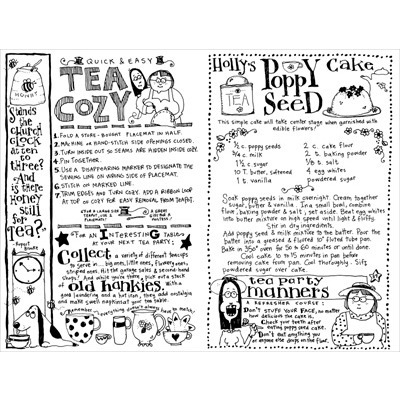 HONEY
"Stands
the
church
clock
at ten
to
three?
And
is there
honey
still
for
tea?"
Rupert
Brooke
QUICK & EASY
TEA
COZY
1. FOLD A STORE-BOUGHT PLACEMAT IN HALF.
2. MACHINE OR HAND-STITCH SIDE OPENINGS CLOSED.
3. TURN INSIDE OUT SO SEAMS ARE HIDDEN INSIDE COZY.
4. PIN TOGETHER.
5. USE A DISAPPEARING MARKER TO DESIGNATE THE
SEWING LINE ON WRONG SIDE OF PLACEMAT.
6. STITCH ON MARKED LINE.
7. TRIM EDGES AND TURN COZY. ADD A RIBBON LOOP
AT TOP OF COZY FOR EASY REMOVAL FROM TEAPOT.
FOR AN INTERESTING
AT YOUR NEXT TEA PARTY:
Collect a variety of different teacups
to serve in... big ones, little ones, flowery ones,
striped ones. Hit the garage sales & second-hand
shops! And while you're there, pick out a stack
of old hankies. With a
good laundering and a hot iron, they add nostalgia
and make swell napkins at your tea table.
Remember... Everything doesn't always have to match!
Holly's Poppy Cake
SeeD
TEA
This simple cake will take center stage when garnished with
edible flowers!
1/2 c. poppy seeds
3/4 c. milk
1 1/2 c. sugar
10 T. butter, softened
1 t. vanilla
2 c. cake flour
2 t. baking powder
1/8 t. salt
4 egg whites
powdered sugar
Soak poppy seeds in milk overnight. Cream together
sugar, butter & vanilla. In a small bowl, combine
flour, baking powder & salt; set aside. Beat egg whites
into butter mixture on high speed until light & fluffy.
Stir in dry ingredients.
Add poppy seed & milk mixture to the batter. Pour the
batter into a greased & floured 10" fluted tube pan.
Bake in 350° oven for 50 to 60 minutes or until done.
Cool cake 10 to 15 minutes in pan before
removing cake from pan. Cool thoroughly. Sift
powdered sugar over cake.
tea party
manners
A REFRESHER COURSE:
Don't STUFF YOUR FACE, no matter
how delicious the cake is.
Check your teeth after
eating poppy seed cake.
Don't let anything you
or anyone else drops on the floor.